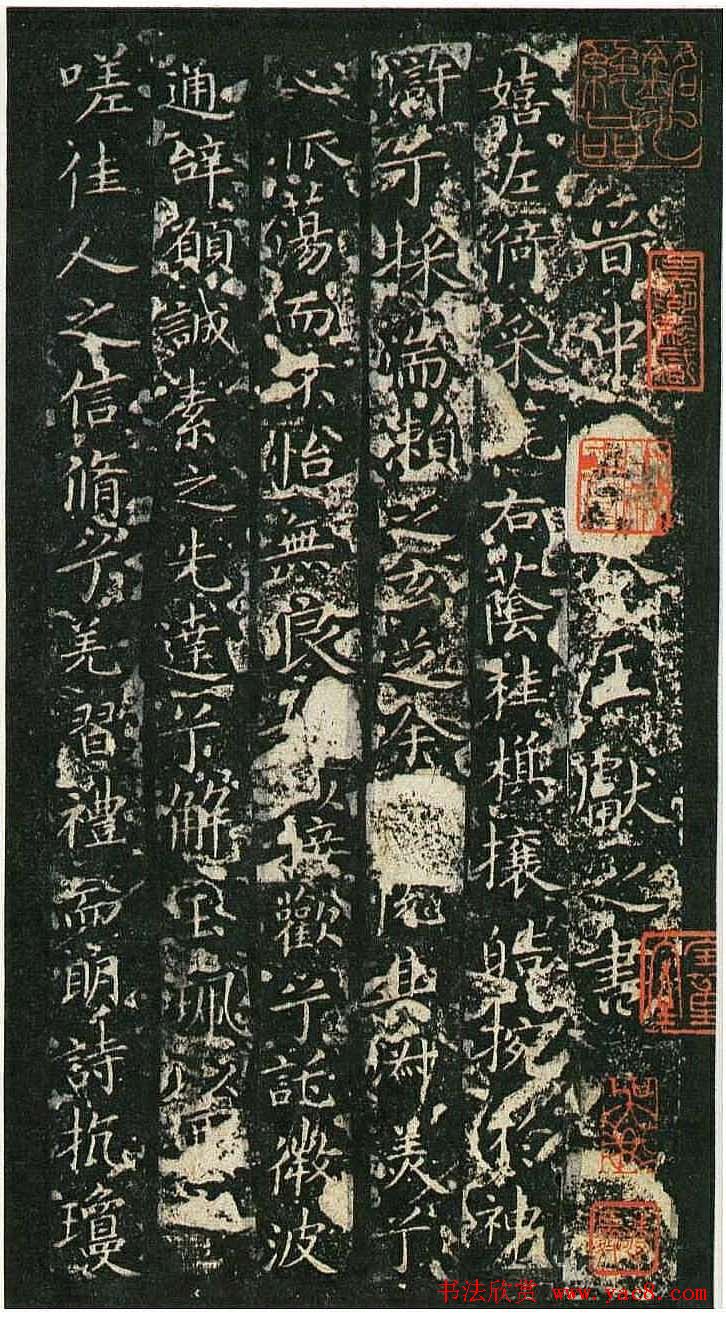 銘心絕品
晉中令王獻之書
嬉左倚采旄右蔭桂旗攘皓捥於神
滸兮採湍瀨之玄芝余悅其淑美兮
心振蕩而不怡無良以接歡兮託微波
通辭願誠素之先達兮解玉珮以要之
嗟佳人之信脩兮羌習禮而明詩抗瓊
书法欣赏 www.yac8.com